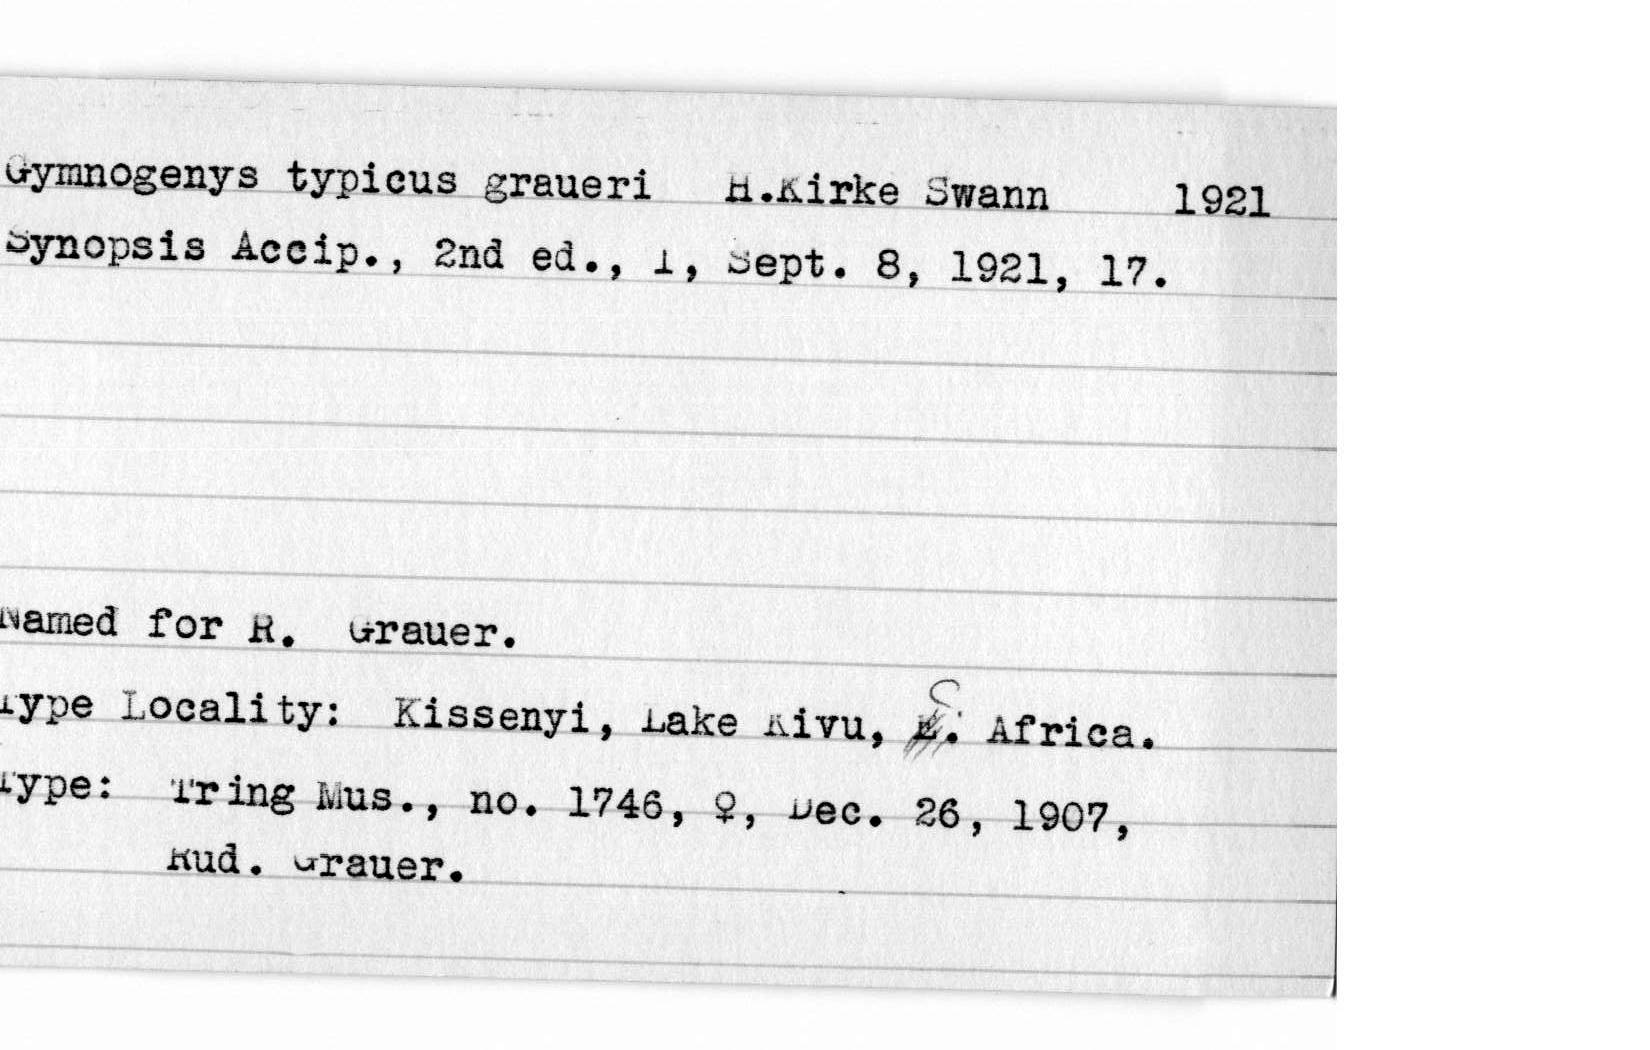 Gymnogenys typicus graueri H.Kirke Swann 1921
Synopsis Accip., 2nd ed., 1, Sept. 8, 1921, 17.
Named for R. Grauer.
Type Locality: Kissenyi, Lake Kivu, C. Africa.
Type: Tring Mus., no. 1746, ♀, Dec. 26, 1907,
Rud. Grauer.